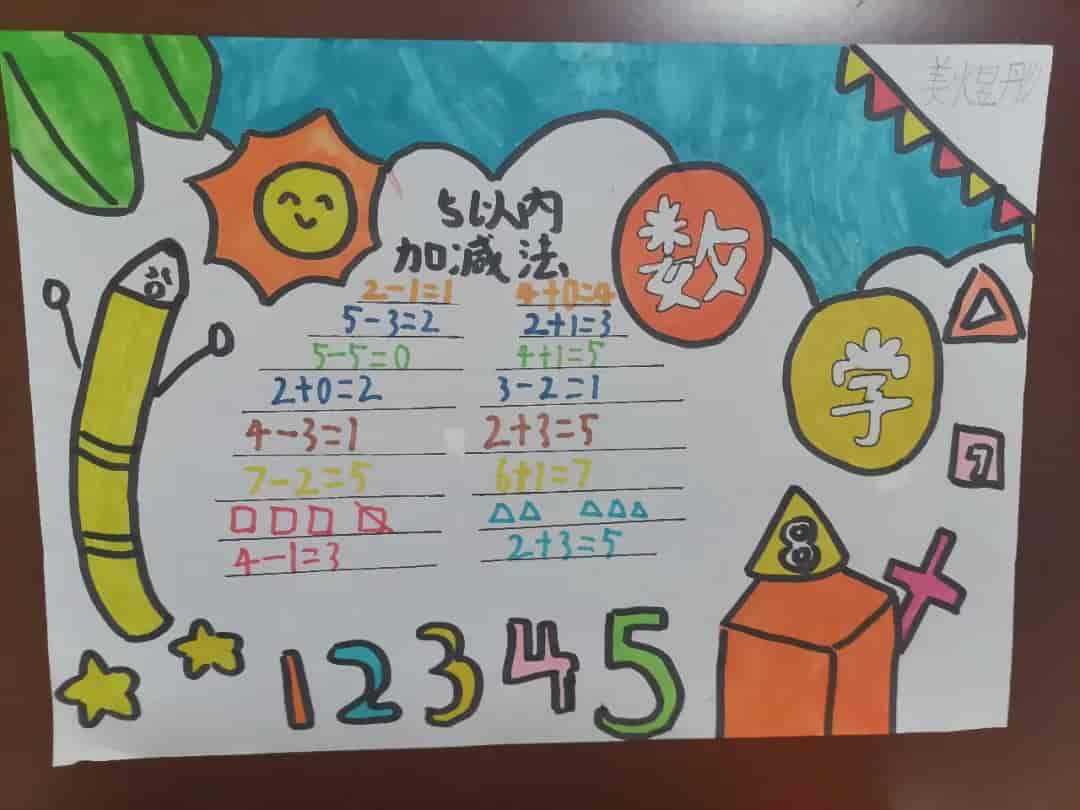 美火昱彤
数
学
5以内
加减法
2-1=1 4+0=4
5-3=2 2+1=3
5-5=0 4+1=5
2+0=2 3-2=1
4-3=1 2+3=5
7-2=5 6+1=7
4-1=3 2+3=5
7
8
1 2 3 4 5